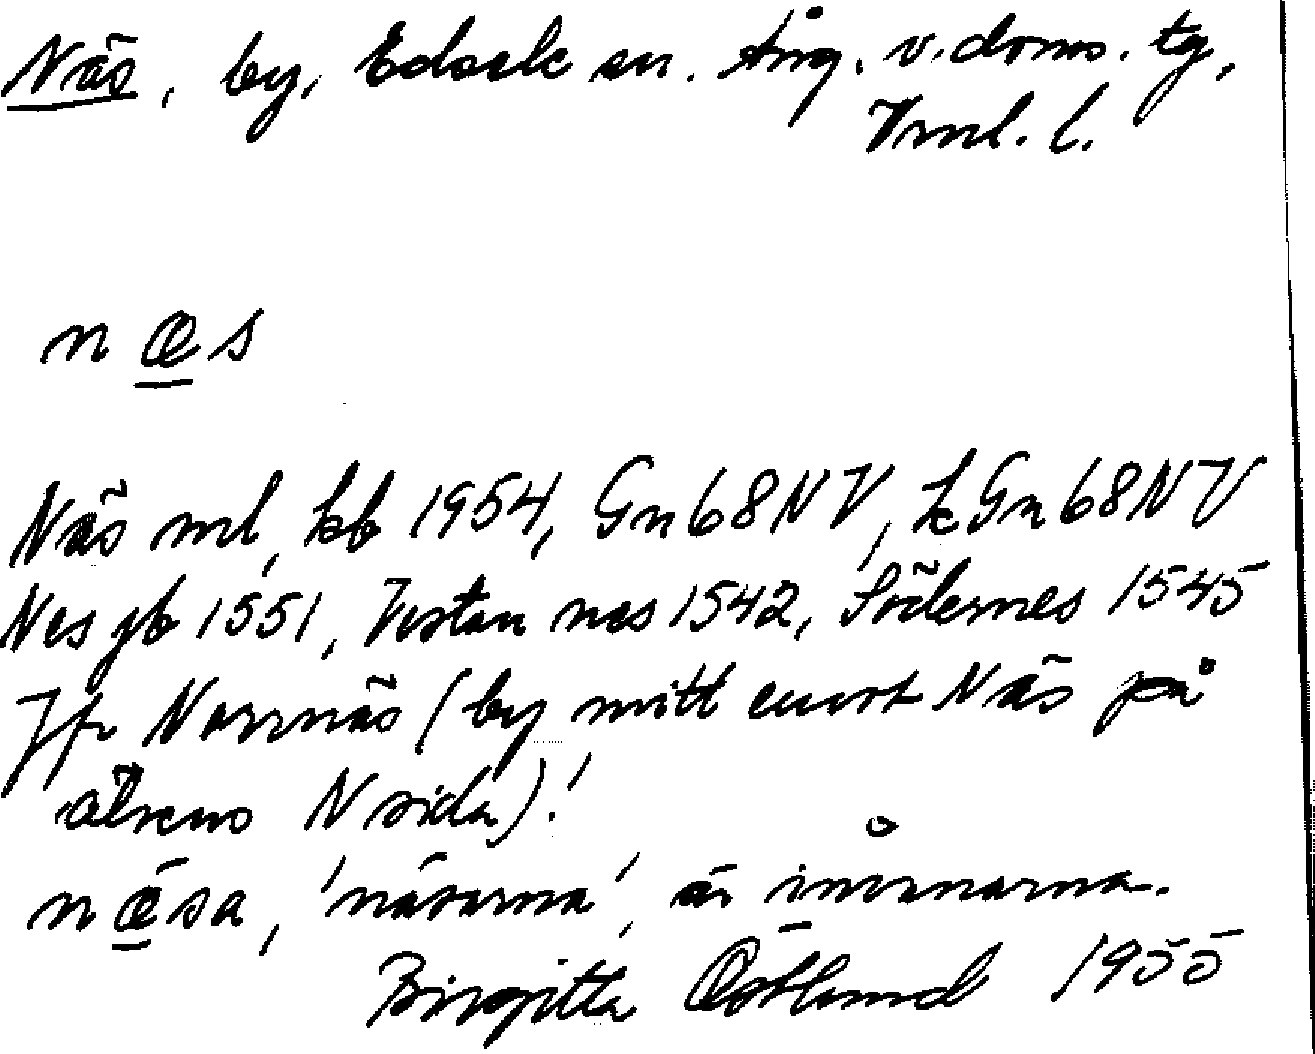 Näs, by, Edsele sn. Ång. v. doms. tg,
Vrnl. l.
næs
Näs ml, kb 1954, Gn 68 NV, kGn 68 NV
Nes jb 1551, Vestan nes 1542, Södernes 1545
Jfr Norrnäs (by mitt emot Näs på
älvens N sida)!
næsa, 'näsarna', är invånarna.
Birgitta Östlund 1955